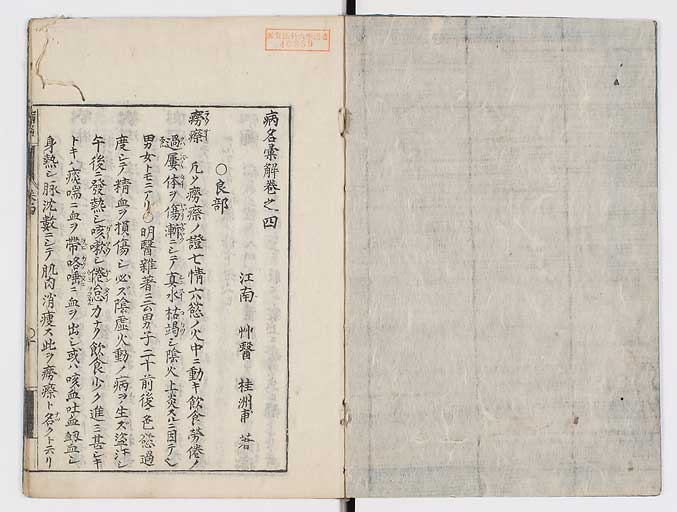 病名彙解巻之四
江南 艸醫 桂洲甫 著
○良部
癆瘵 凡ソ癆瘵ノ證七情六慾ノ火中ニ動キ飲食勞倦ノ
過屢体ヲ傷漸ニシテ真水枯竭シ陰火上炎スルニ因テ
男女トモニアリ○明醫雜著ニ云男子二十前後色慾過
度シテ精血ヲ損傷シ必ズ陰虚火動ノ病ヲ生ズ盜汗シ
午後ニ發熱シ咳嗽シ倦怠力ナク飲食少ク進ミ甚シキ
トキハ痰喘ニ血ヲ帶咯唾ニ血ヲ出シ或ハ咳血吐血衂血シ
身熱シ脉沈數ニシテ肌肉消痩ス此ヲ癆瘵ト名クト云リ
40859